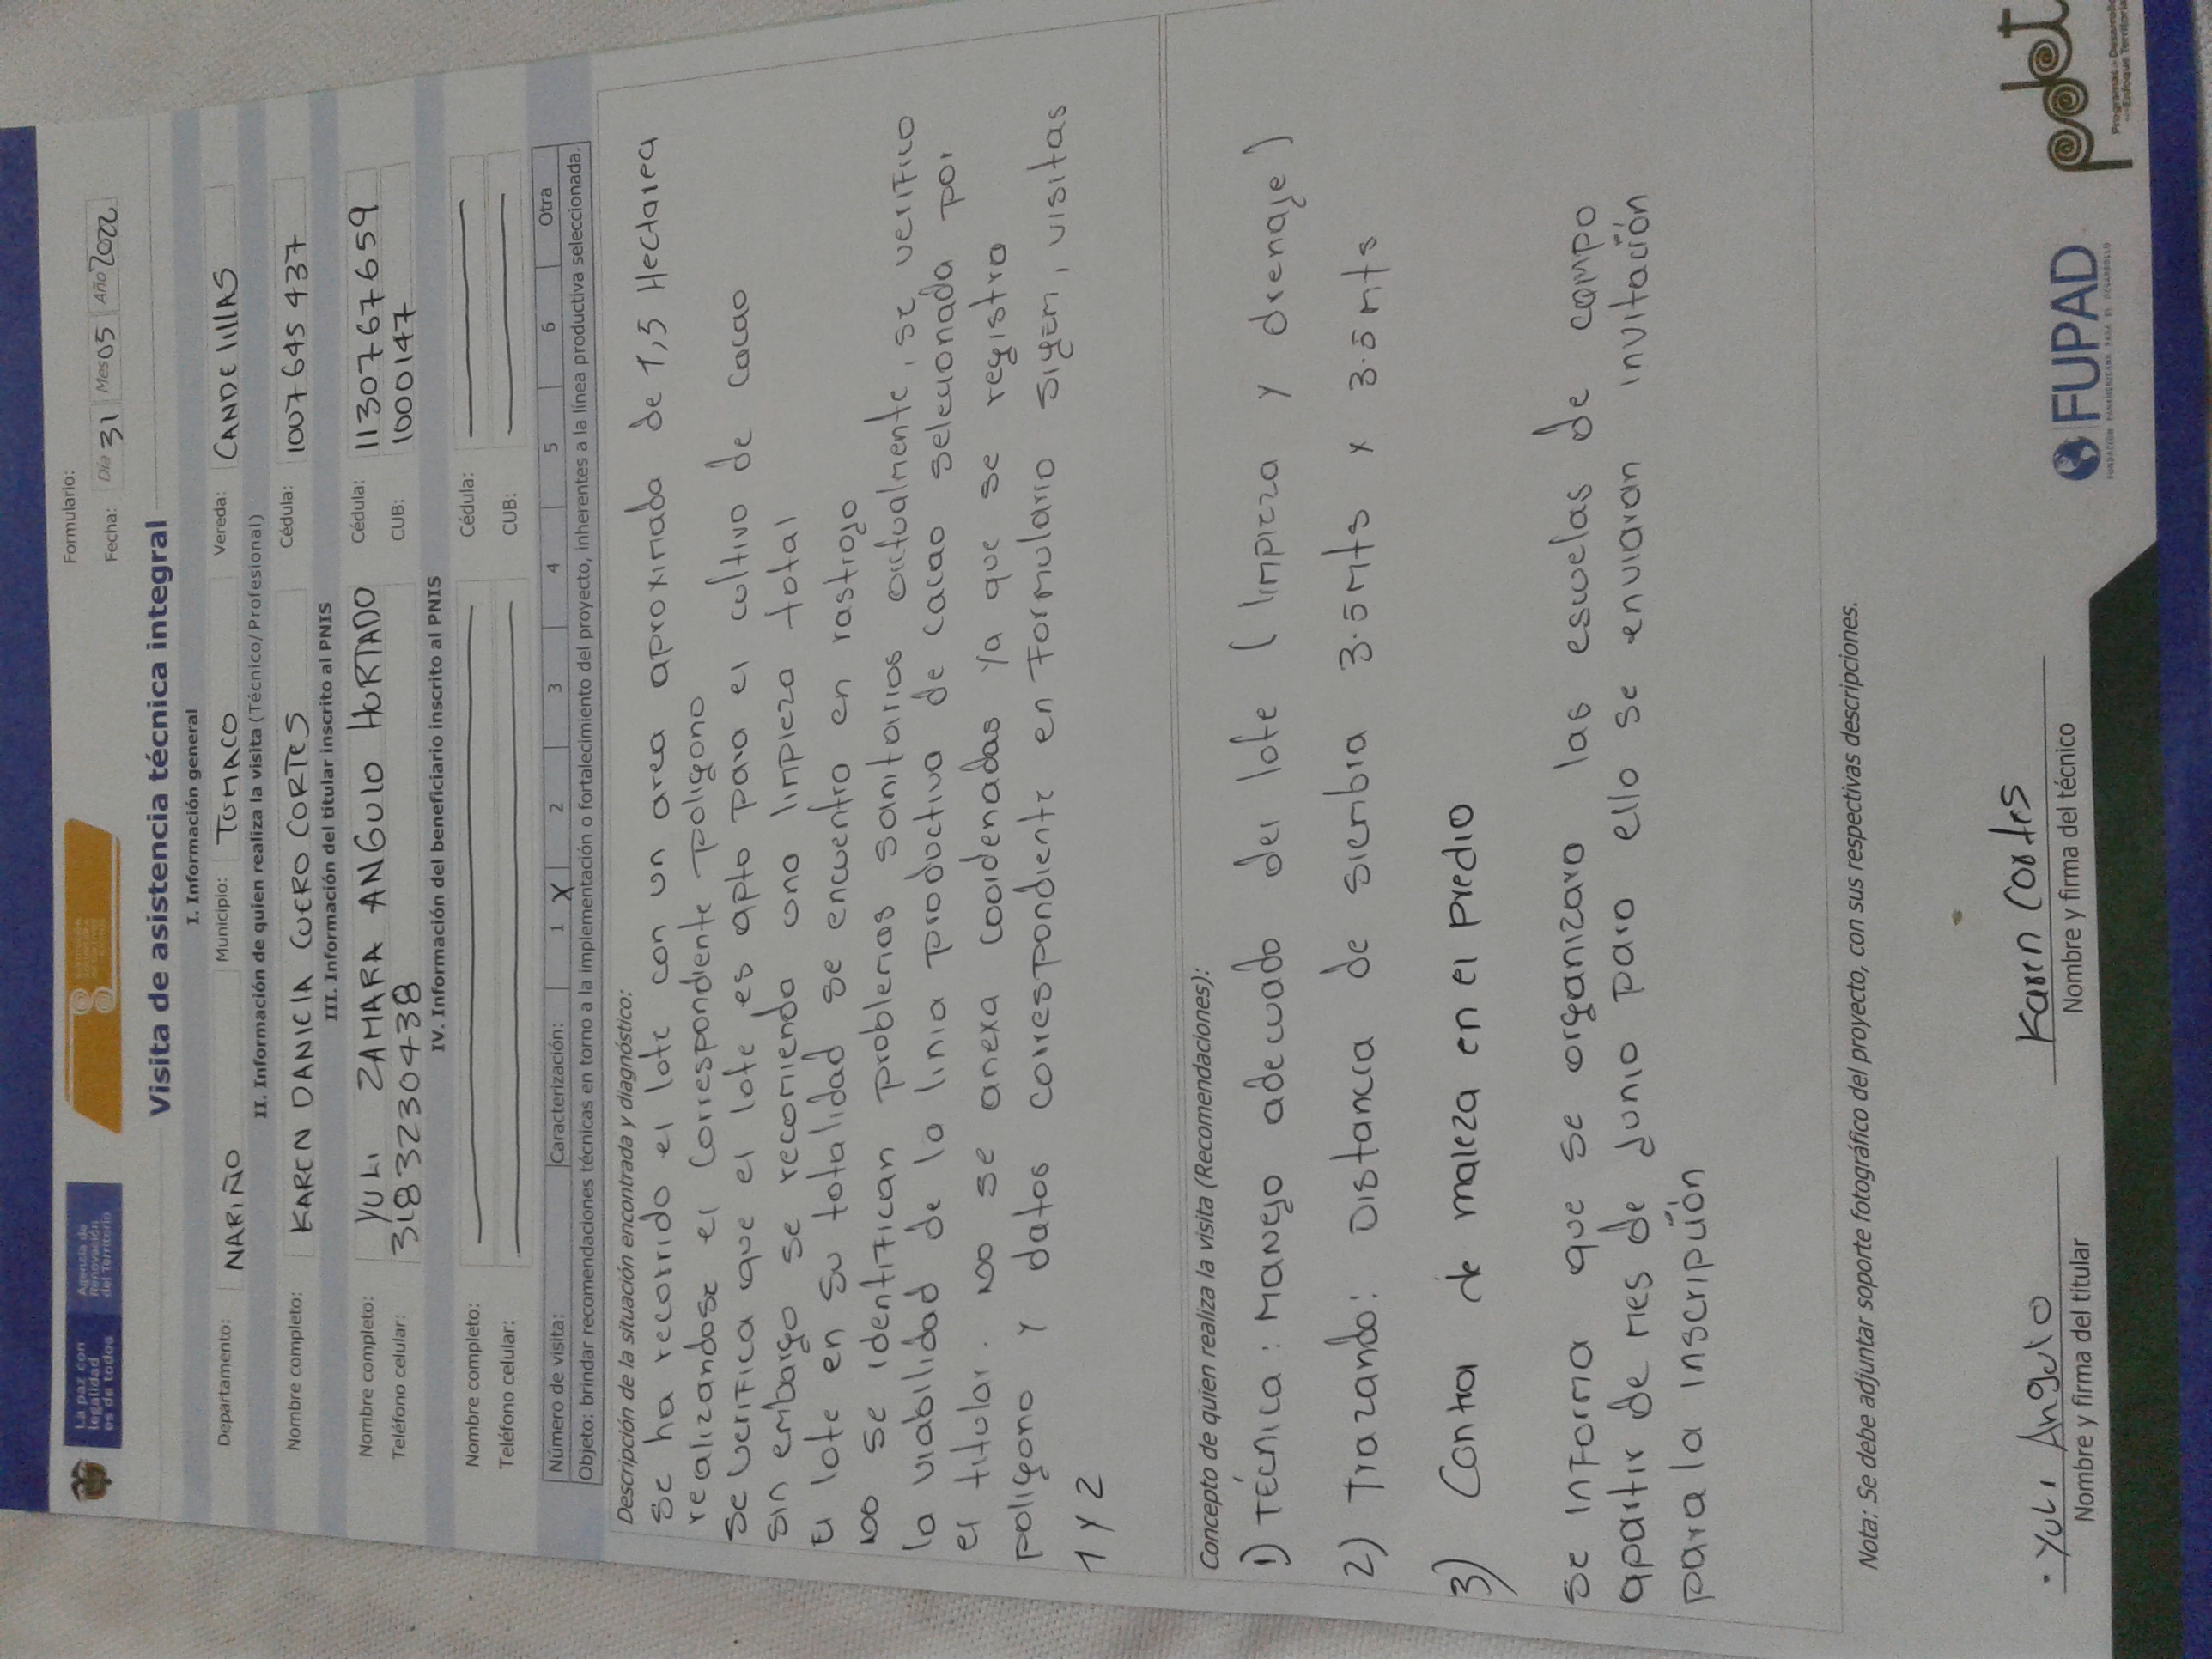 La paz con
legalidad
es de todos
Agencia de
Renovación
del Territorio
Formulario:
Fecha: Día 31 Mes 05 Año 2022
Visita de asistencia técnica integral
I. Información general
Departamento: NARIÑO Municipio: TUMACO Vereda: CANDELILLAS
II. Información de quien realiza la visita (Técnico/Profesional)
Nombre completo: KAREN DANIELA CUERO CORTES Cédula: 1007645437
III. Información del titular inscrito al PNIS
Nombre completo: YULI ZAMARA ANGULO HURTADO Cédula: 1130767659
Teléfono celular: 3183230438 CUB: 1000147
IV. Información del beneficiario inscrito al PNIS
Nombre completo: Cédula:
Teléfono celular: CUB:
Número de visita: Caracterización: 1 X 2 3 4 5 6 Otra
Objeto: brindar recomendaciones técnicas en torno a la implementación o fortalecimiento del proyecto, inherentes a la línea productiva seleccionada.
Descripción de la situación encontrada y diagnóstico:
se ha recorrido el lote con un area aproximada de 1,5 Hectarea
realizandose el correspondiente poligono
se verifica que el lote, es apto para el cultivo de cacao
sin embargo se recomienda una limpieza total
El lote en su totalidad se encuentra en rastrojo
No se identifican problemas sanitarios actualmente, se verifico
la viabilidad de la linia productiva de cacao seleccionada por
el titular. No se anexa cooidenadas ya que se registro
poligono y datos correspondiente en Formulario sigem, visitas
1 y 2
Concepto de quien realiza la visita (Recomendaciones):
1) Técnica: Manejo adecuado del lote (limpieza y drenaje)
2) Trazando: Distancia de siembra 3.5 mts x 3.5 mts
3) Contra de maleza en el predio
se informa que se organizara las escuelas de campo
apartir de mes de Junio para ello se enviaran invitación
para la inscripción
Nota: Se debe adjuntar soporte fotográfico del proyecto, con sus respectivas descripciones.
Yuli Angulo Karen Cortes
Nombre y firma del titular Nombre y firma del técnico
FUPAD
FUNDACIÓN PANAMERICANA PARA EL DESARROLLO
pdet
Programas de Desarrollo
con Enfoque Territorial